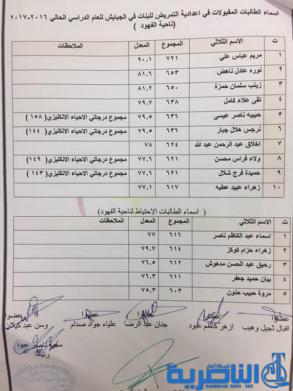 اسماء الطالبات المقبولات في اعدادية التمريض للبنات في الجبايش للعام الدراسي الحالي ٢٠١٦-٢٠١٧
(ناحية الفهود)
ت الاسم الثلاثي المجموع المعدل الملاحظات
١ مريم عباس علي ٧٢١ ٩٠,١
٢ نوره عادل ناهض ٦٥٣ ٨١,٦
٣ زينب سلمان حمزة ٦٥٠ ٨١,٢
٤ تقى علاء كامل ٦٣٨ ٧٩,٧
٥ حبيبه ناصر عيسى ٦٣٦ ٧٩,٥ مجموع درجاتي الاحياء الانكليزي (١٥٨)
٦ نرجس هلال جبار ٦٣٦ ٧٩,٥ مجموع درجاتي الاحياء الانكليزي (١٤٤)
٧ اخلاق عبد الرحمن عبد الله ٦٢٤ ٧٨
٨ ولاء فراس محسن ٦٢١ ٧٧,٦ مجموع درجاتي الاحياء الانكليزي (١٤٩)
٩ حميدة فرج شلال ٦٢١ ٧٧,٦ مجموع درجاتي الاحياء الانكليزي (١٤٣)
١٠ زهراء عبيد عطيه ٦١٧ ٧٧,١
(اسماء الطالبات الاحتياط لناحية الفهود)
ت الاسم الثلاثي المجموع المعدل الملاحظات
١ اسماء عبد الكاظم ناصر ٦١٦ ٧٧
٢ زهراء حزام كوكز ٦١٤ ٧٩,٧
٣ رحيق عبد الحسن مدهوش ٦١٢ ٧٦,٥
٤ بيان حميد جعفر ٦١١ ٧٦,٣
٥ مروة حبيب حنون ٦٠٣ ٧٥,٣
اقبال ثجيل وهيب ازهر كاظم عبود جنان عبد الرضا علياء جواد صدام وسن عبد
الناصرية